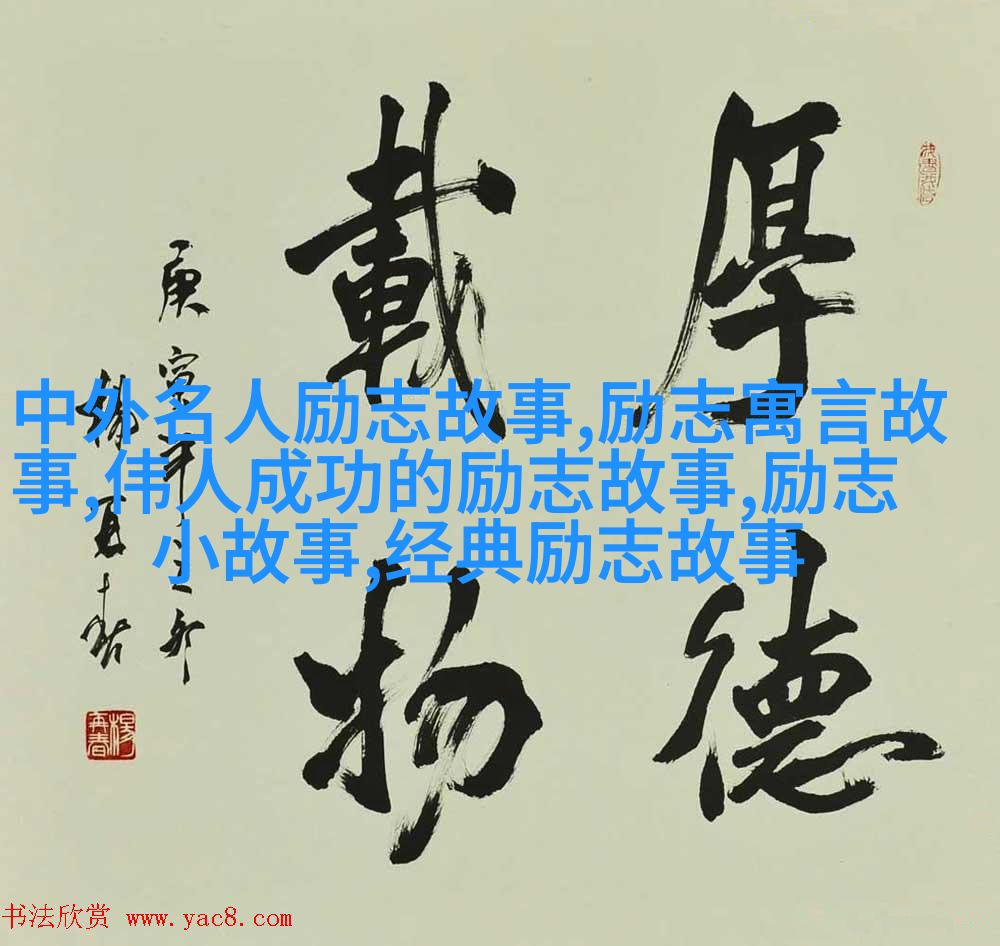 厚德
載物
庚寅年之卯
楊再春
楊再春
中外名人励志故事,励志寓言故
事,伟人成功的励志故事,励志
小故事,经典励志故事
书法欣赏 www.yac8.com